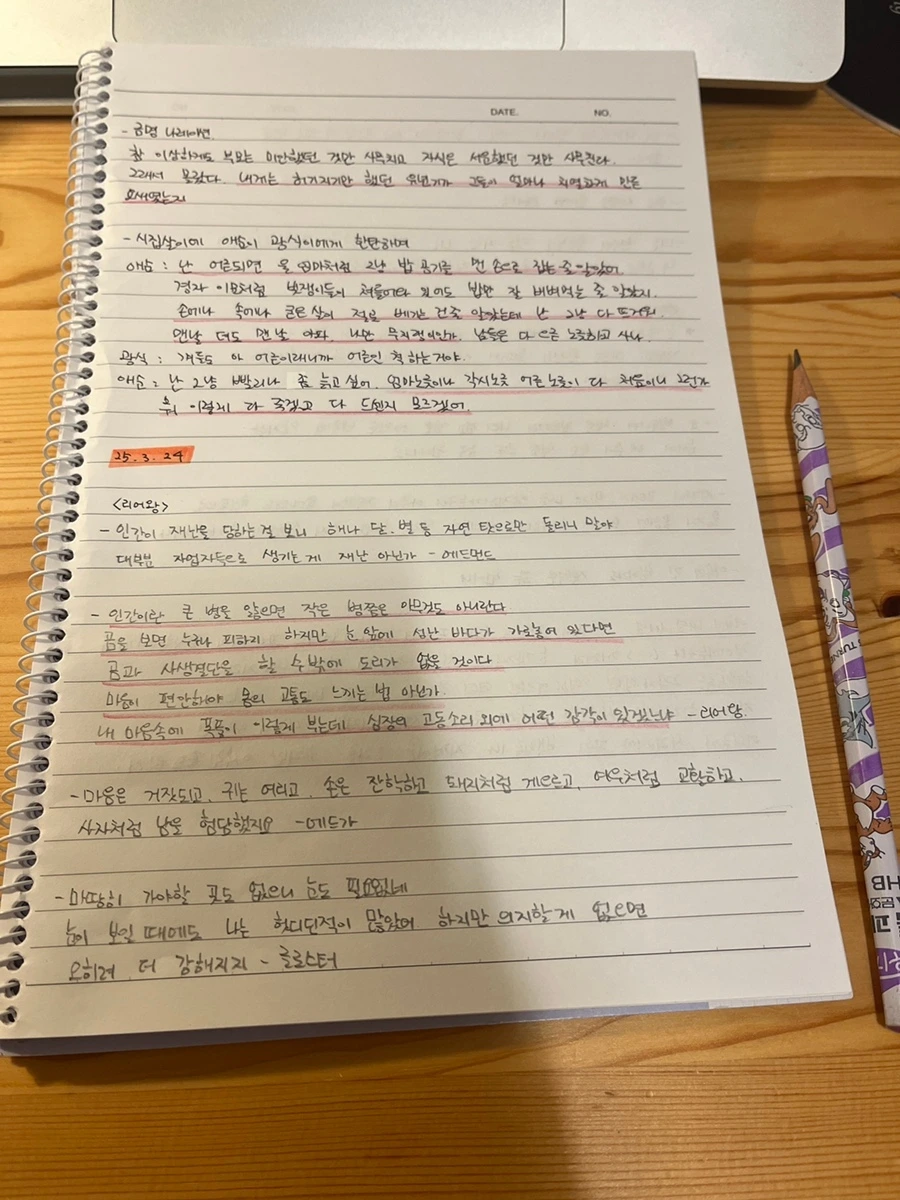 DATE. NO.
- 금명 나레이션
참 이상하게도 부모는 미안했던 것만 사무치고 자식은 서운했던 것만 사무친다.
그래서 몰랐다. 내게는 허기지기만 했던 유년기가 그들이 얼마나 치열하게 만든
요새였는지
- 시집살이에 애순이 광식이에게 한탄하며
애순 : 난 어른되면 울 엄마처럼 그냥 밥 공기를 맨 손으로 잡는 줄 알았어
경자 이모처럼 빚쟁이들이 쳐들어와 있어도 밥만 잘 비벼먹는 줄 알았지.
손에나 속에나 굳은 살이 절로 베기는 건줄 알았는데 난 그냥 다 뜨거워.
맨날 데도 맨 날 아퍼. 나만 모지랭이인가. 남들은 다 어른 노릇하고 사나.
광식 : 걔들도 아 어른이래니까 어른인 척 하는거야.
애순 : 난 그냥 빨리나 좀 늙고 싶어. 엄마노릇이나 각시노릇 어른 노릇이 다 처음이니 그런가
뭐 이렇게 다 죽겠고 다 드센지 모르겠어.
25.3.24
<리어왕>
- 인간이 재난을 당하는걸 보니 해나 달. 별 등 자연 탓으로만 돌리니 말야
대부분 자업자득으로 생기는 게 재난 아닌가 - 에드먼드
- 인간이란 큰 병을 앓으면 작은 병쯤은 아무것도 아니란다
곰을 보면 누구나 피하지 하지만 눈 앞에 성난 바다가 가로놓여 있다면
곰과 사생결단을 할 수 밖에 도리가 없을 것이다
마음이 편안해야 몸의 고통도 느끼는 법 아닌가.
내 마음속에 폭풍이 이렇게 부는데 심장의 고동소리 외에 어떤 감각이 있겠느냐 - 리어왕.
- 마음은 거짓되고, 귀는 여리고, 손은 잔학하고 돼지처럼 게으르고, 여우처럼 교활하고.
사자처럼 남을 험담했지요 - 에드가
- 마땅히 가야할 곳도 없으니 눈도 필요없네
눈이 보일 때에도 나는 헛디딘적이 많았어 하지만 의지할 게 없으면
오히려 더 강해지지 - 글로스터
HB